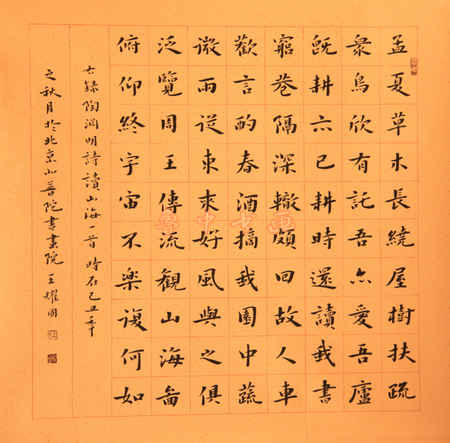 孟夏草木長繞屋樹扶疏
衆鳥欣有託吾亦愛吾廬
既耕亦已耕時還讀我書
窮巷隔深轍頗回故人車
歡言酌春酒摘我園中蔬
微雨從東來好風與之俱
泛覽周王傳流觀山海圖
俯仰終宇宙不樂復何如
右錄陶淵明詩讀山海一首 時在己丑年
之秋月於北京 書畫院 王耀